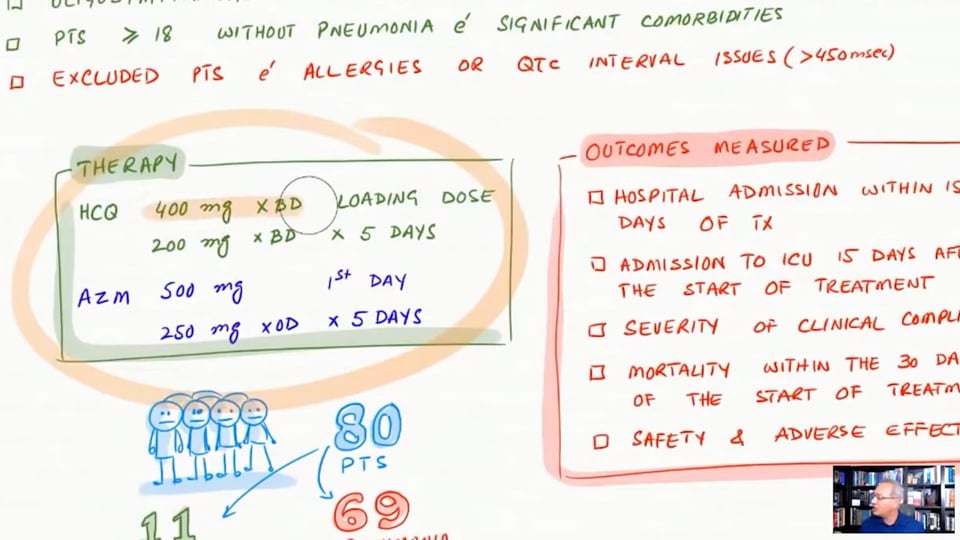 PTS ≥ 18 WITHOUT PNEUMONIA é SIGNIFICANT COMORBIDITIES
EXCLUDED PTS é ALLERGIES OR QTC INTERVAL ISSUES (>450msec)
THERAPY
HCQ 400 mg X BD LOADING DOSE
200 mg X BD X 5 DAYS
AZM 500 mg 1st DAY
250 mg X OD X 5 DAYS
80
PTS
11
69
OUTCOMES MEASURED
HOSPITAL ADMISSION WITHIN 15
DAYS OF TX
ADMISSION TO ICU 15 DAYS AF
THE START OF TREATMENT
SEVERITY OF CLINICAL COMPLI
MORTALITY WITHIN THE 30 DA
OF THE START OF TREATM
SAFETY & ADVERSE EFFECT